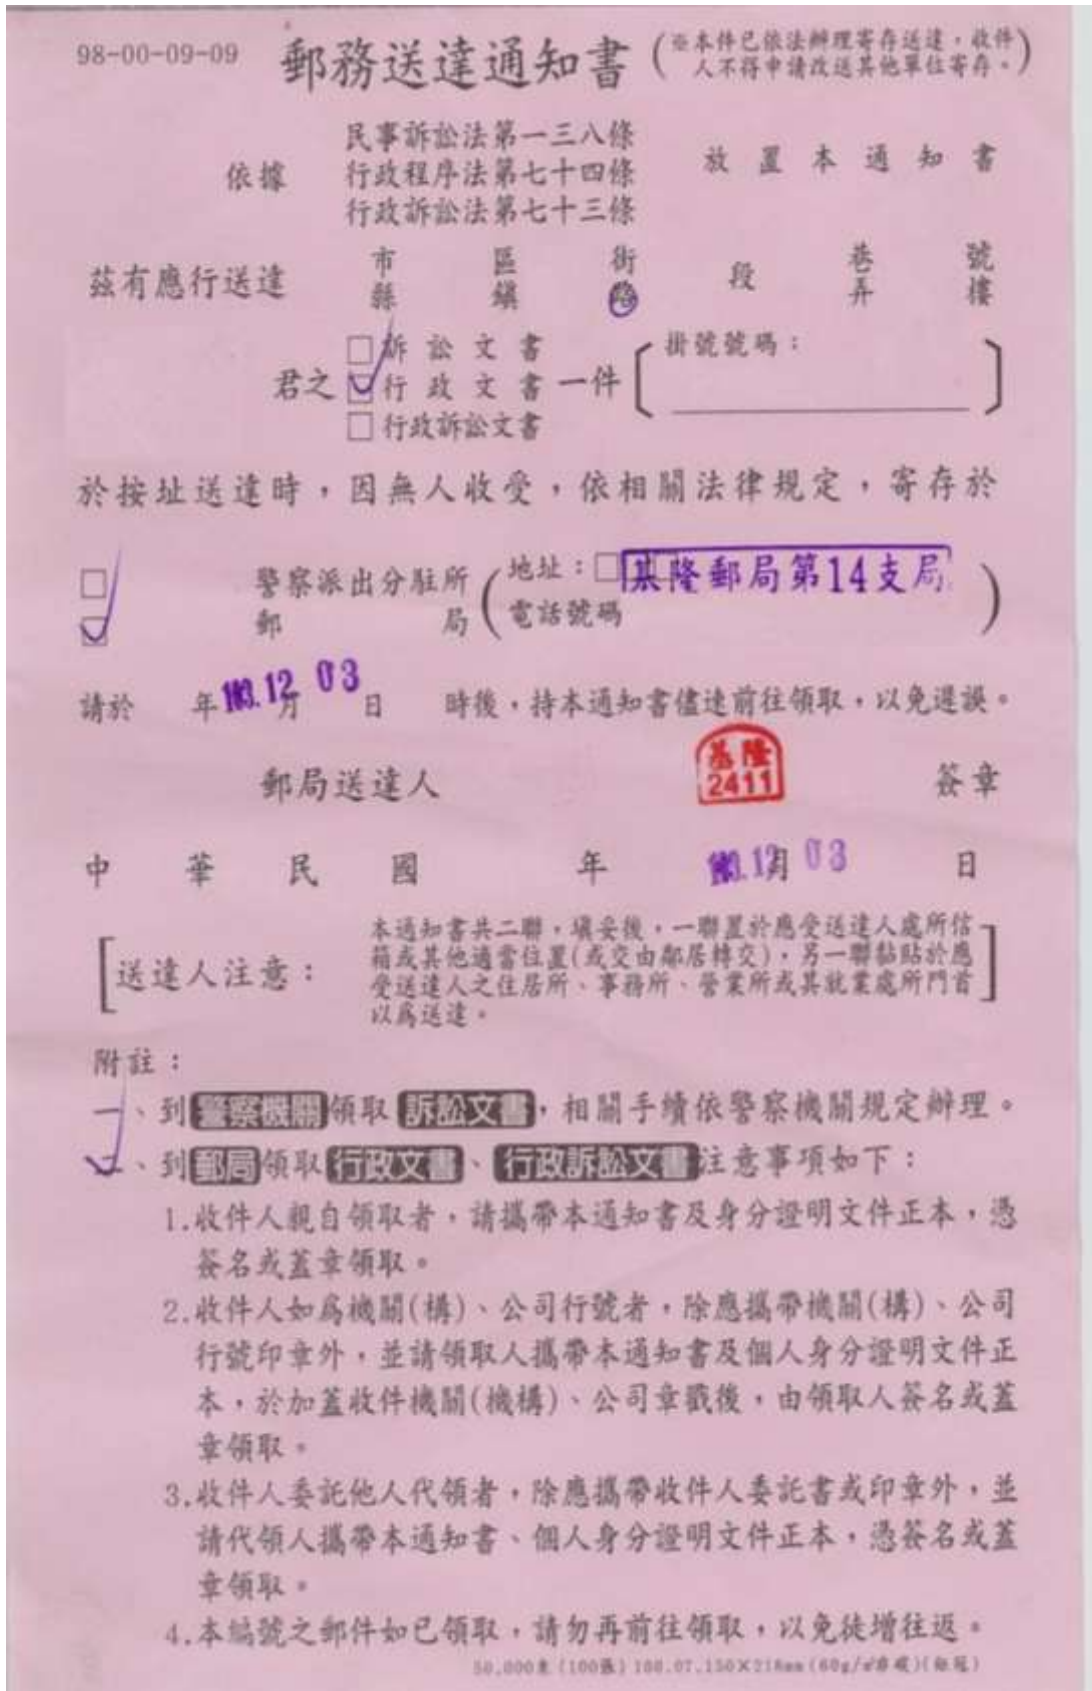 98-00-09-09 郵務送達通知書(※本件已依法辦理寄存送達,收件人不得申請改送其他單位寄存。)
民事訴訟法第一三八條
依據 行政程序法第七十四條 放置本通知書
行政訴訟法第七十三條
茲有應行送達 市縣 區鎮 街路 段 巷弄 號樓
□訴訟文書 掛號號碼:
君之□行政文書一件
□行政訴訟文書
於按址送達時,因無人收受,依相關法律規定,寄存於
□ 警察派出分駐所(地址:□基隆郵局第14支局)
□ 郵局 電話號碼
請於 年 月 日 時後,持本通知書儘速前往領取,以免遲誤。
103.12 03
郵局送達人 基隆 2411 簽章
中華民國 年 月 日
103.12 03
[送達人注意:
本通知書共二聯,填妥後,一聯置於應受送達人處所信
箱或其他適當位置(或交由鄰居轉交),另一聯黏貼於應
受送達人之住居所、事務所、營業所或其就業處所門首
以為送達。]
附註:
一、到警察機關領取訴訟文書,相關手續依警察機關規定辦理。
二、到郵局領取行政文書、行政訴訟文書注意事項如下:
1.收件人親自領取者,請攜帶本通知書及身分證明文件正本,憑
簽名或蓋章領取。
2.收件人如為機關(構)、公司行號者,除應攜帶機關(構)、公司
行號印章外,並請領取人攜帶本通知書及個人身分證明文件正
本,於加蓋收件機關(機構)、公司章戳後,由領取人簽名或蓋
章領取。
3.收件人委託他人代領者,除應攜帶收件人委託書或印章外,並
請代領人攜帶本通知書、個人身分證明文件正本,憑簽名或蓋
章領取。
4.本編號之郵件如已領取,請勿再前往領取,以免徒增往返。
50,000束(100張)100.07.150×218mm